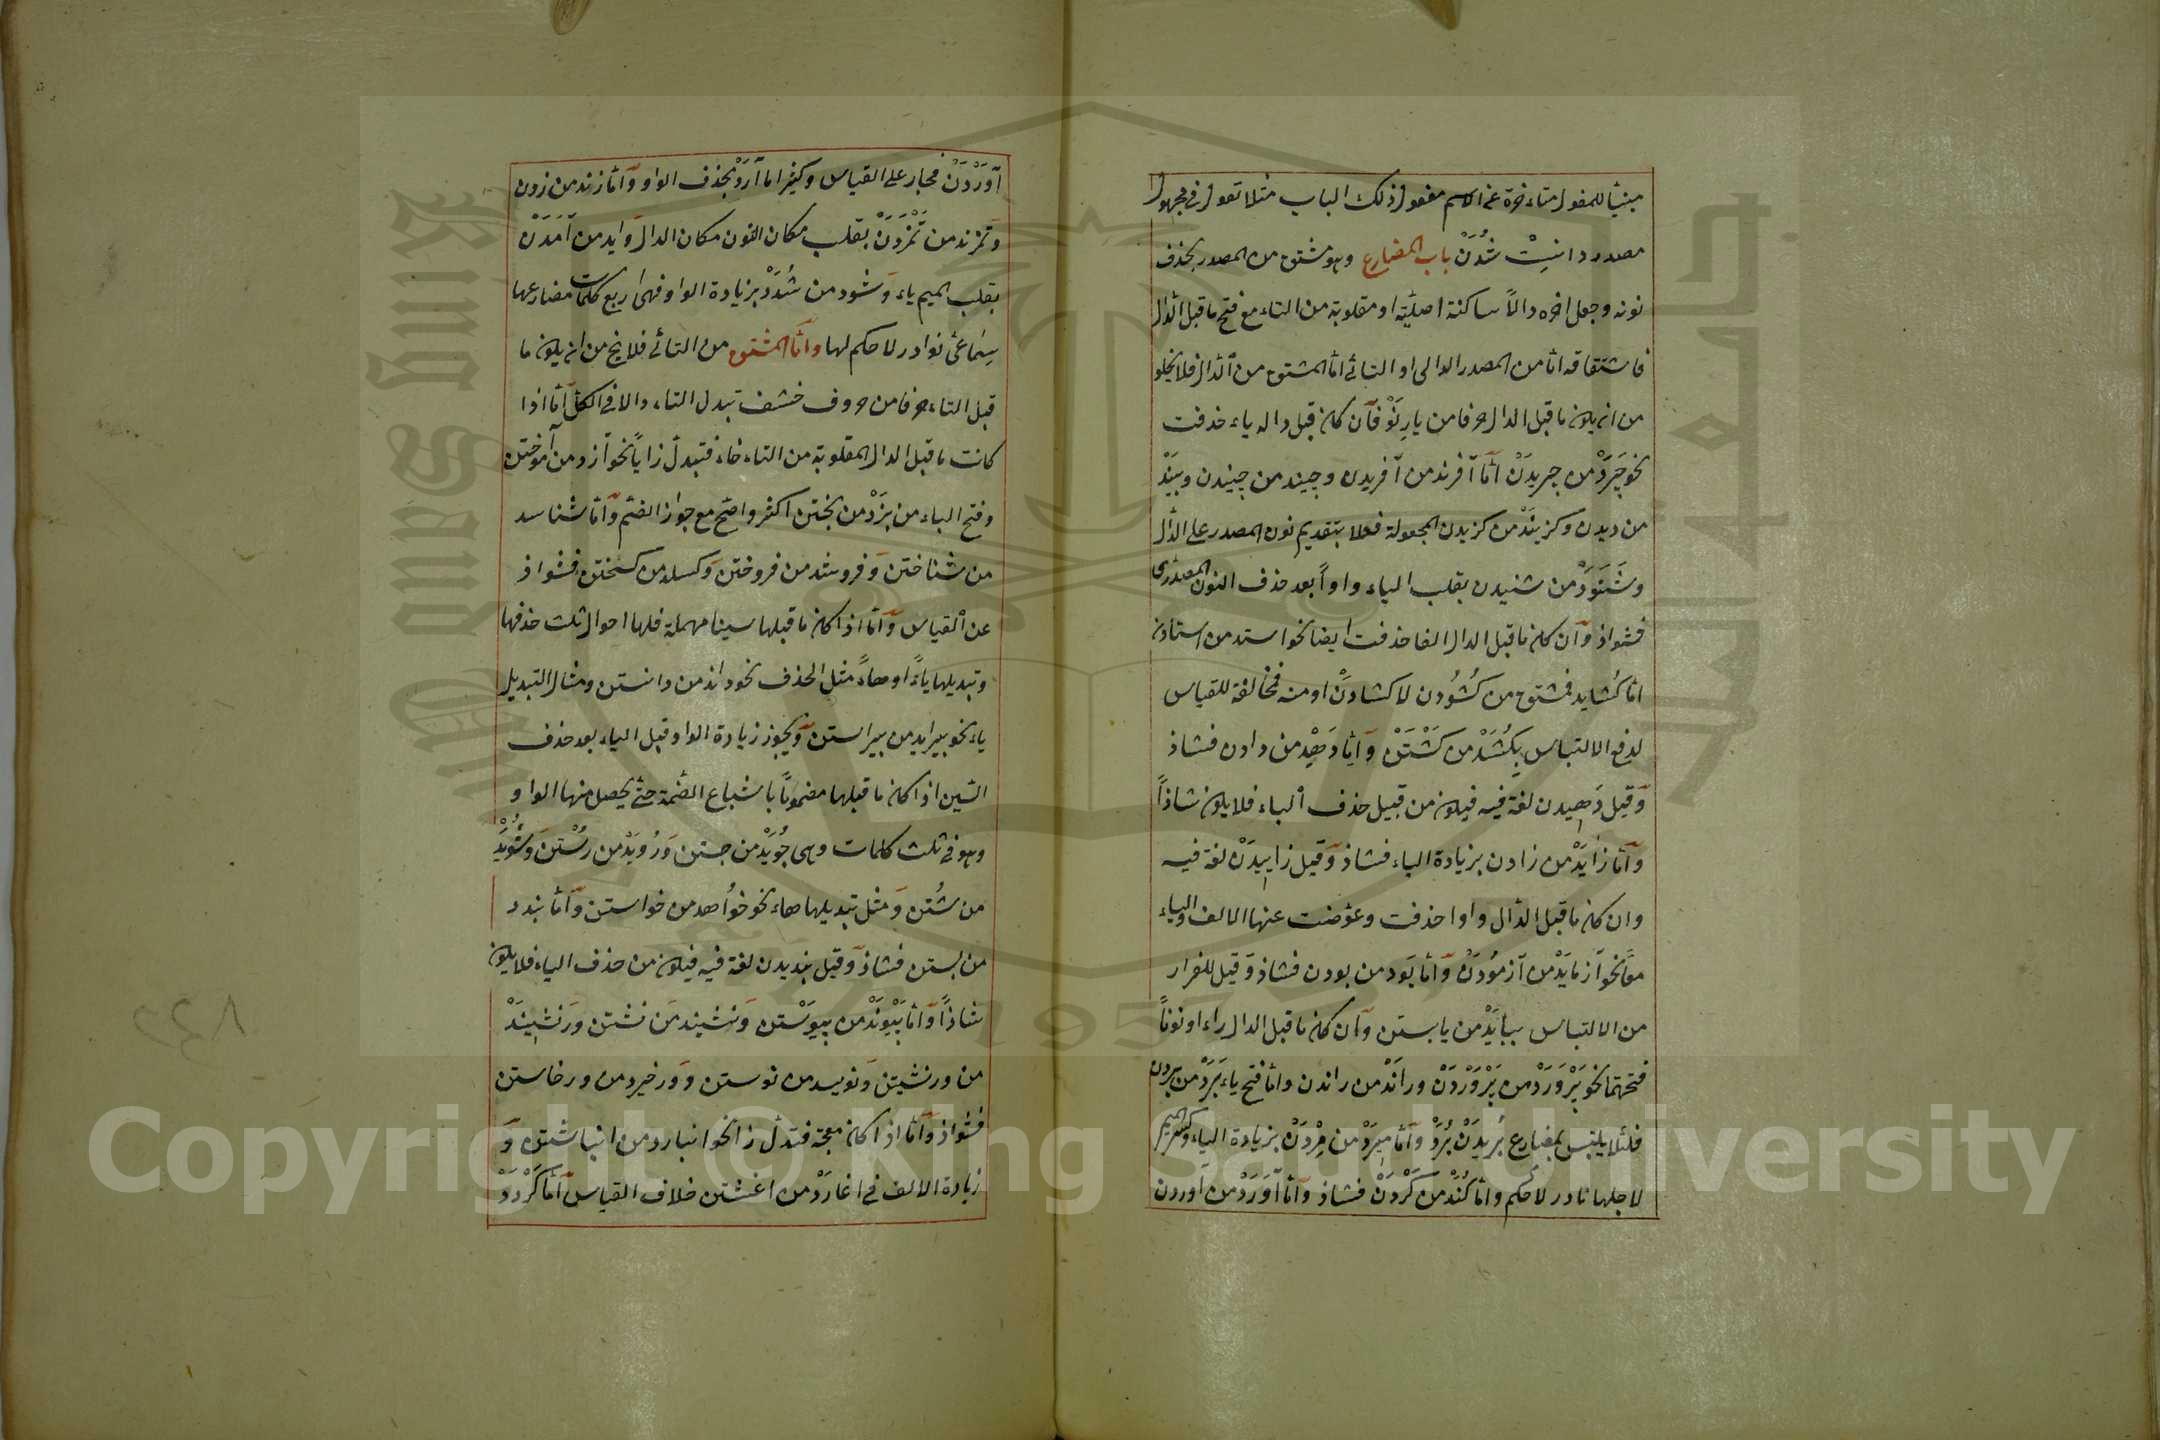 مبنيا للمفعول متاءخرة عن الاسم مفعول ذلك الباب مثلا تقول في مجهول
مصدر دانست شُدَنْ باب المضارع وهو مشتق من المصدر بحذف
نونه وجعل اخره دالاً ساكنة اصلية او مقلوبة من التاء مع فتح ما قبل الدال
فاشتقاقه اما من المصدر الدالى او التائى اما المشتق من الدال فلا يخلو
من ان يكون ما قبل الدال حرفا من يارنو فان كان قبل داله ياء حذفت
نحو چَرَدْ من چريدَنْ اما آفرند من آفريدن وچيند من چيندن وبيَنْد
من ديدن وكزينَدْ من كزيدن المجعولة فعلا بتقديم نون المصدر على الدال
وشَنَوَدْ من شنيدن بقلب الياء واواً بعد حذف النون المصدرى
فشواذ وان كان ما قبل الدال الفا حذفت ايضا نحو استد من استادن
اما كُشايد فمشتق من كُشُودن لا كشادنْ او منه فمخالفة للقياس
لدفع الالتباس بِكُشَدْ من كَشْتَنْ وَاما دَهِدْ من دادن فشاذ
وَقيل دَهيدن لغة فيه فيكون من قبيل حذف الياء فلا يكون شاذاً
وَاما زايَدْ من زادن بزيادة الياء فشاذ وَقيل زاييدَنْ لغة فيه
وان كان ما قبل الدال واوا حذفت وعوضت عنها الالف والياء
معاً نحو آزمايَدْ من آزمُودَنْ وَاما بَود من بودن فشاذ وَقيل للفرار
من الالتباس ببايَدْ من يابستن وَان كان ما قبل الدال راء او نوناً
فتحتهما نحو پَرْوَرَدْ من پَرْوَرْدَنْ ورانَدْ من راندن واما فتح ياء بَرَدْ من بردن
فلئلا يلتبس بمضارع بُريدَنْ بُرَدْ وَاما ميرَدْ من مِرْدَنْ بزيادة الياء وكسر الميم
لاجلها نادر لا حكم واما كُنَدْ من كَرْدَنْ فشاذ وَاما آوَرَدْ من آوردن
آوَرْدَنْ فجار على القياس وكثيرا ما آرَدْ بحذف الواو وَاما زند من زدن
وَتَمْزند من تَمْزَدَنْ بقلب مكان النون مكان الدال وَايد من آمَدَنْ
بقلب الميم ياء وَشود من شُدَدْ بزيادة الواو فهى اربع كلمات مضارعها
سماعى نوادر لا حكم لها واما المشتق من التائى فلا يخ من ان يكون ما
قبل التاء حرفا من حروف خشف تبدل التاء دالا فى الكل اما اذا
كانت ما قبل الدال المقلوبة من التاء خاء فتبدل زاياً نحو آزد من آموختن
وفتح الباء من پزَدْ من پختن اكثر واضح مع جواز الضم وَاما شناسد
من شناختن وَفروشد من فروختن وَكسلد من كسختن فشواذ
عن القياس وَاما اذا كان ما قبلها سينا مهملة فلها احوال ثلث حذفها
وتبديلها ياءً او هاءً مثل الحذف نحو داند من دانستن ومثال التبديل
ياء نحو پيرايد من پيراستن وَيجوز زيادة الواو قبل الياء بعد حذف
السين اذا كان ما قبلها مضموماً باشباع الضمة حتى يحصل منها الواو
وهو فى ثلث كلمات وهى جُويَدْ من جستن وَرُويَدْ من رُسْتن وَشُويَدْ
من شُتن وَمثل تبديلها هاء نحو خواهد من خواستن وَاما بندد
من بستن فشاذ وَقيل بنديدن لغة فيه فيكون من حذف الياء فلا يكون
شاذاً وَاما پَيْوَنَدْ من پيوَسْتن وَنشيند من نشتن وَرنشينَدْ
من ورنشيتن وَنويسد من نوستن وَورخيرد من ورخاستن
فشواذ وَاما اذا كان معجمة فتبدل زا نحو انبارد من انباشتن وَ
زيادة الالف فى اغارَدْ من اغشتن خلاف القياس اما كَرْدَدْ